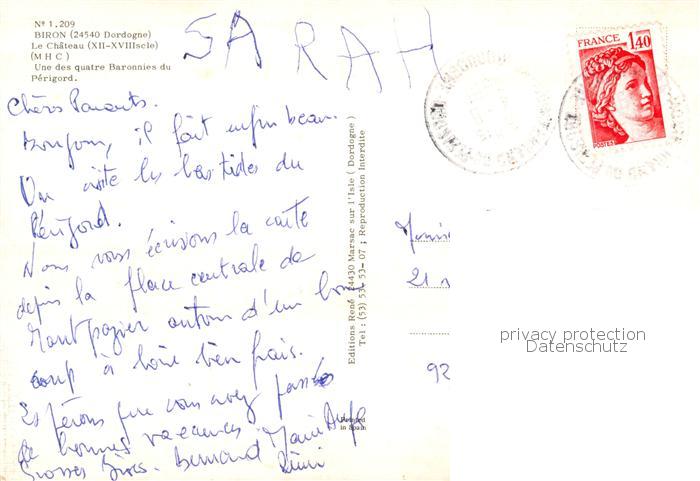 Nº 1.209
BIRON (24540 Dordogne)
Le Château (XII-XVIIIscle)
(MHC)
Une des quatre Baronnies du
Périgord.
SARAH
FRANCE 1,40
POSTES
Chers Parents.
Bonjour, il fait enfin beau.
On visite les bastides du
Périgord.
Nous vous écrivons la carte
depuis la place centrale de
Montpazier autour d'un bon
coup à boire bien frais.
Espérons que vous avez passés
de bonnes vacances.
Grosses Bises. Bernard Marie
Rémi
Editions René 24430 Marsac sur l'Isle (Dordogne)
Tel: (53) 53-53-07; Reproduction Interdite
Printed
in Spain
21
92
privacy protection
Datenschutz